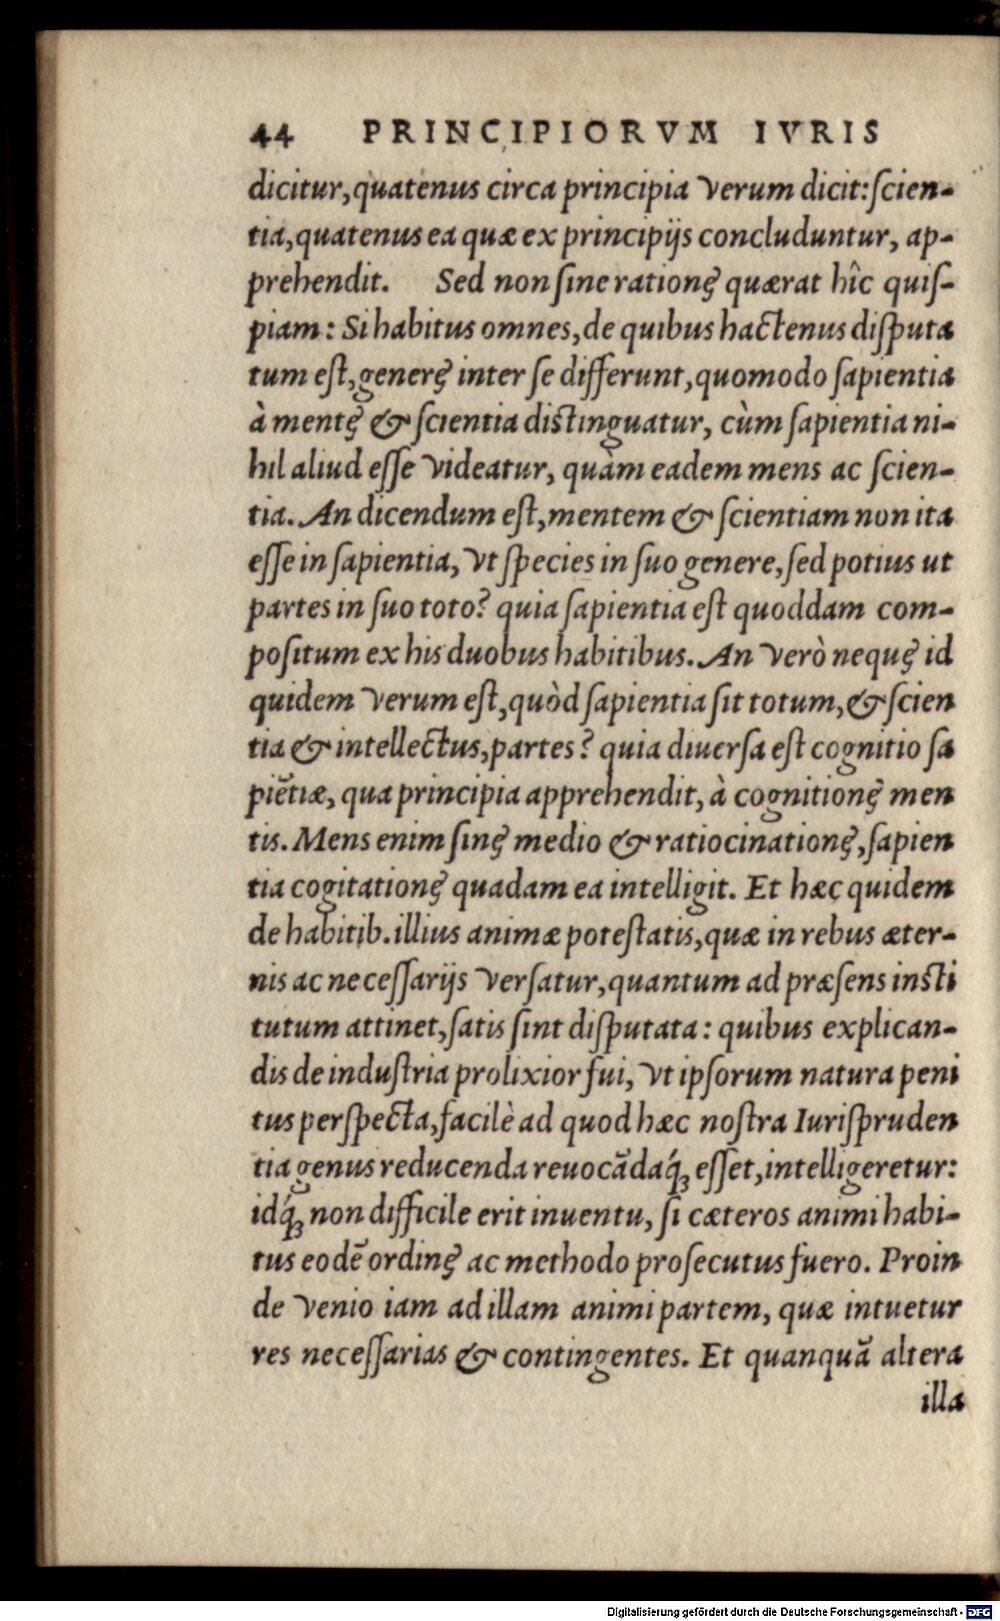 44 PRINCIPIORVM IVRIS
dicitur, quatenus circa principia verum dicit: ſcien-
tia, quatenus ea quæ ex principijs concluduntur, ap-
prehendit. Sed non ſine ratione quærat hîc quiſ-
piam: Si habitus omnes, de quibus hactenus diſputa
tum eſt, genere inter ſe differunt, quomodo ſapientia
à mente & ſcientia diſtinguatur, cùm ſapientia ni-
hil aliud eſſe videatur, quàm eadem mens ac ſcien-
tia. An dicendum eſt, mentem & ſcientiam non ita
eſſe in ſapientia, vt ſpecies in ſuo genere, ſed potius ut
partes in ſuo toto? quia ſapientia eſt quoddam com-
poſitum ex his duobus habitibus. An verò neque id
quidem verum eſt, quòd ſapientia ſit totum, & ſcien
tia & intellectus, partes? quia diuerſa eſt cognitio ſa
piẽtiæ, qua principia apprehendit, à cognitione men
tis. Mens enim ſine medio & ratiocinatione, ſapien
tia cogitatione quadam ea intelligit. Et hæc quidem
de habitib. illius animæ poteſtatis, quæ in rebus æter-
nis ac neceſſarijs verſatur, quantum ad præſens inſti
tutum attinet, ſatis ſint diſputata: quibus explican-
dis de induſtria prolixior fui, vt ipſorum natura peni
tus perſpecta, facilè ad quod hæc noſtra Iuriſpruden
tia genus reducenda reuocãdaq́; eſſet, intelligeretur:
idq́; non difficile erit inuentu, ſi cæteros animi habi-
tus eodẽ ordine ac methodo proſecutus fuero. Proin
de venio iam ad illam animi partem, quæ intuetur
res neceſſarias & contingentes. Et quanquã altera
illa
Digitalisierung gefördert durch die Deutsche Forschungsgemeinschaft - DFG